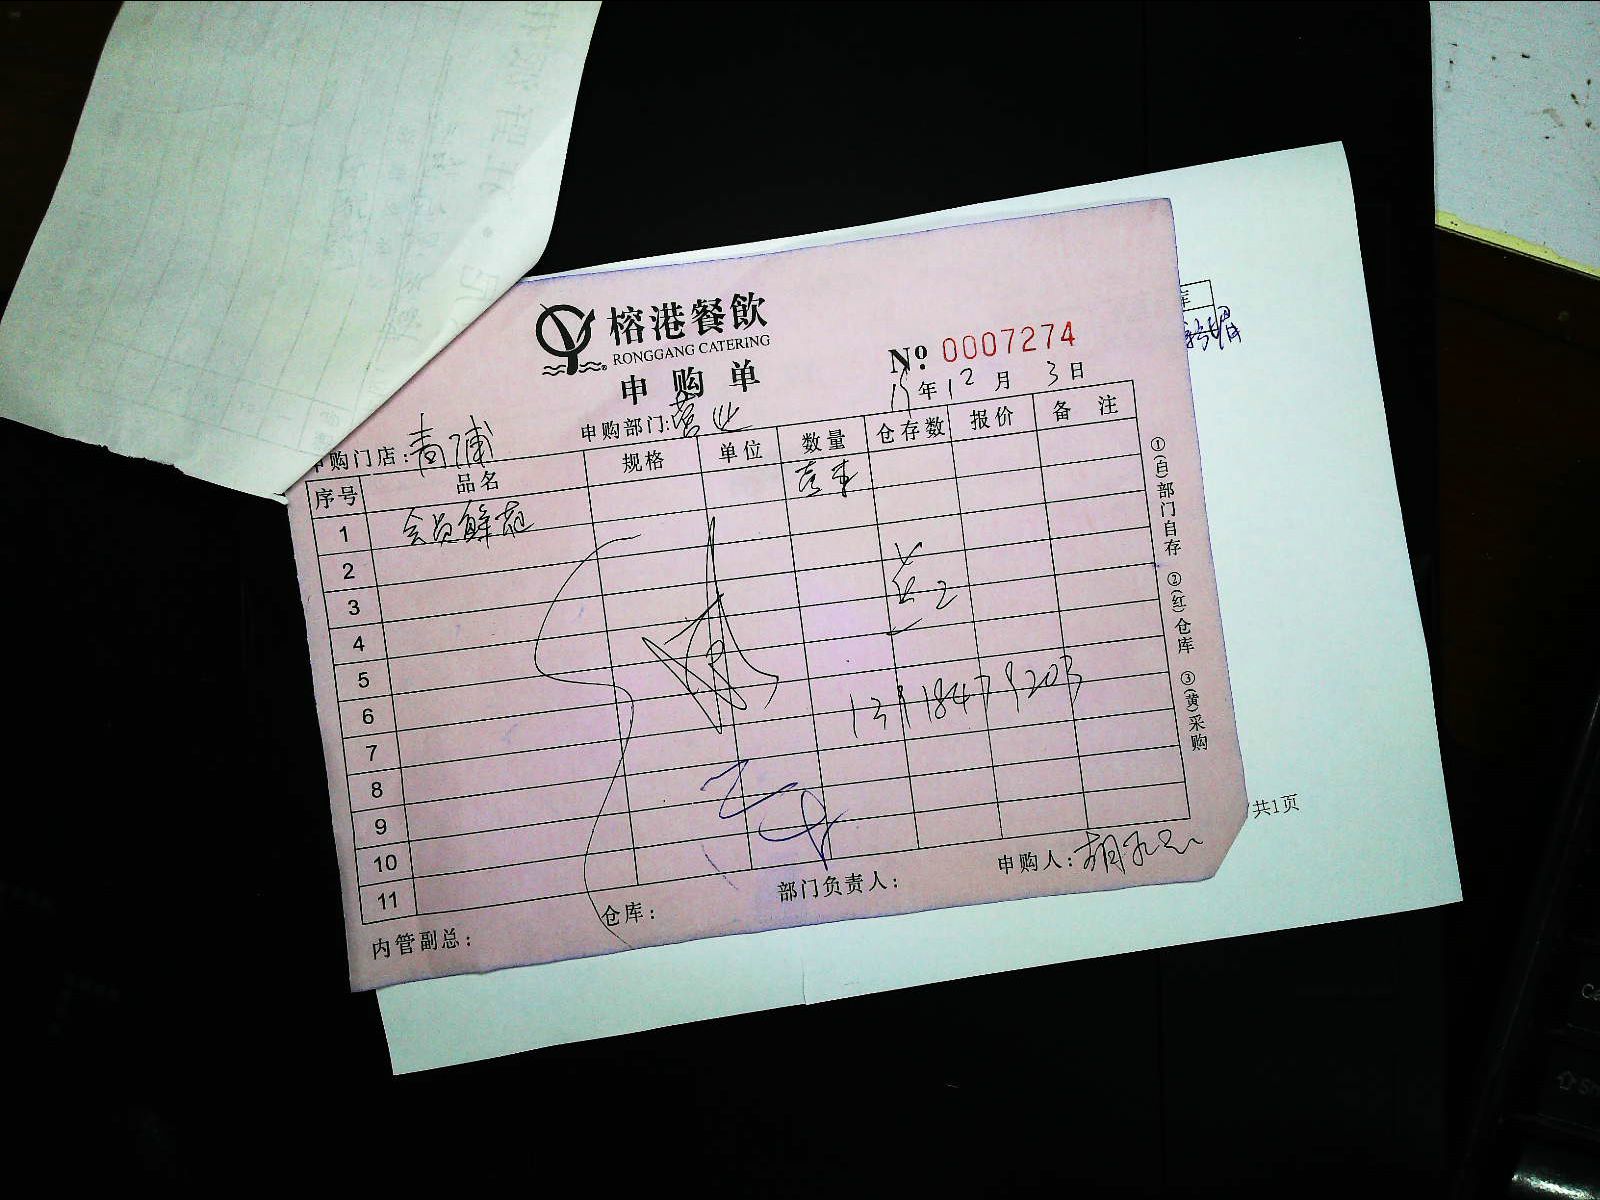 榕港餐飲
RONGGANG CATERING
申购单
No: 0007274
15年12月3日
申购门店:青浦
申购部门:营业
序号 品名 规格 单位 数量 仓存数 报价 备注
1 会员鲜花
2
3
4
5
6
7
8
9
10
11
13918479203
内管副总:
仓库:
部门负责人:
申购人:
①(白)部门自存 ②(红)仓库 ③(黄)采购
库
/共1页